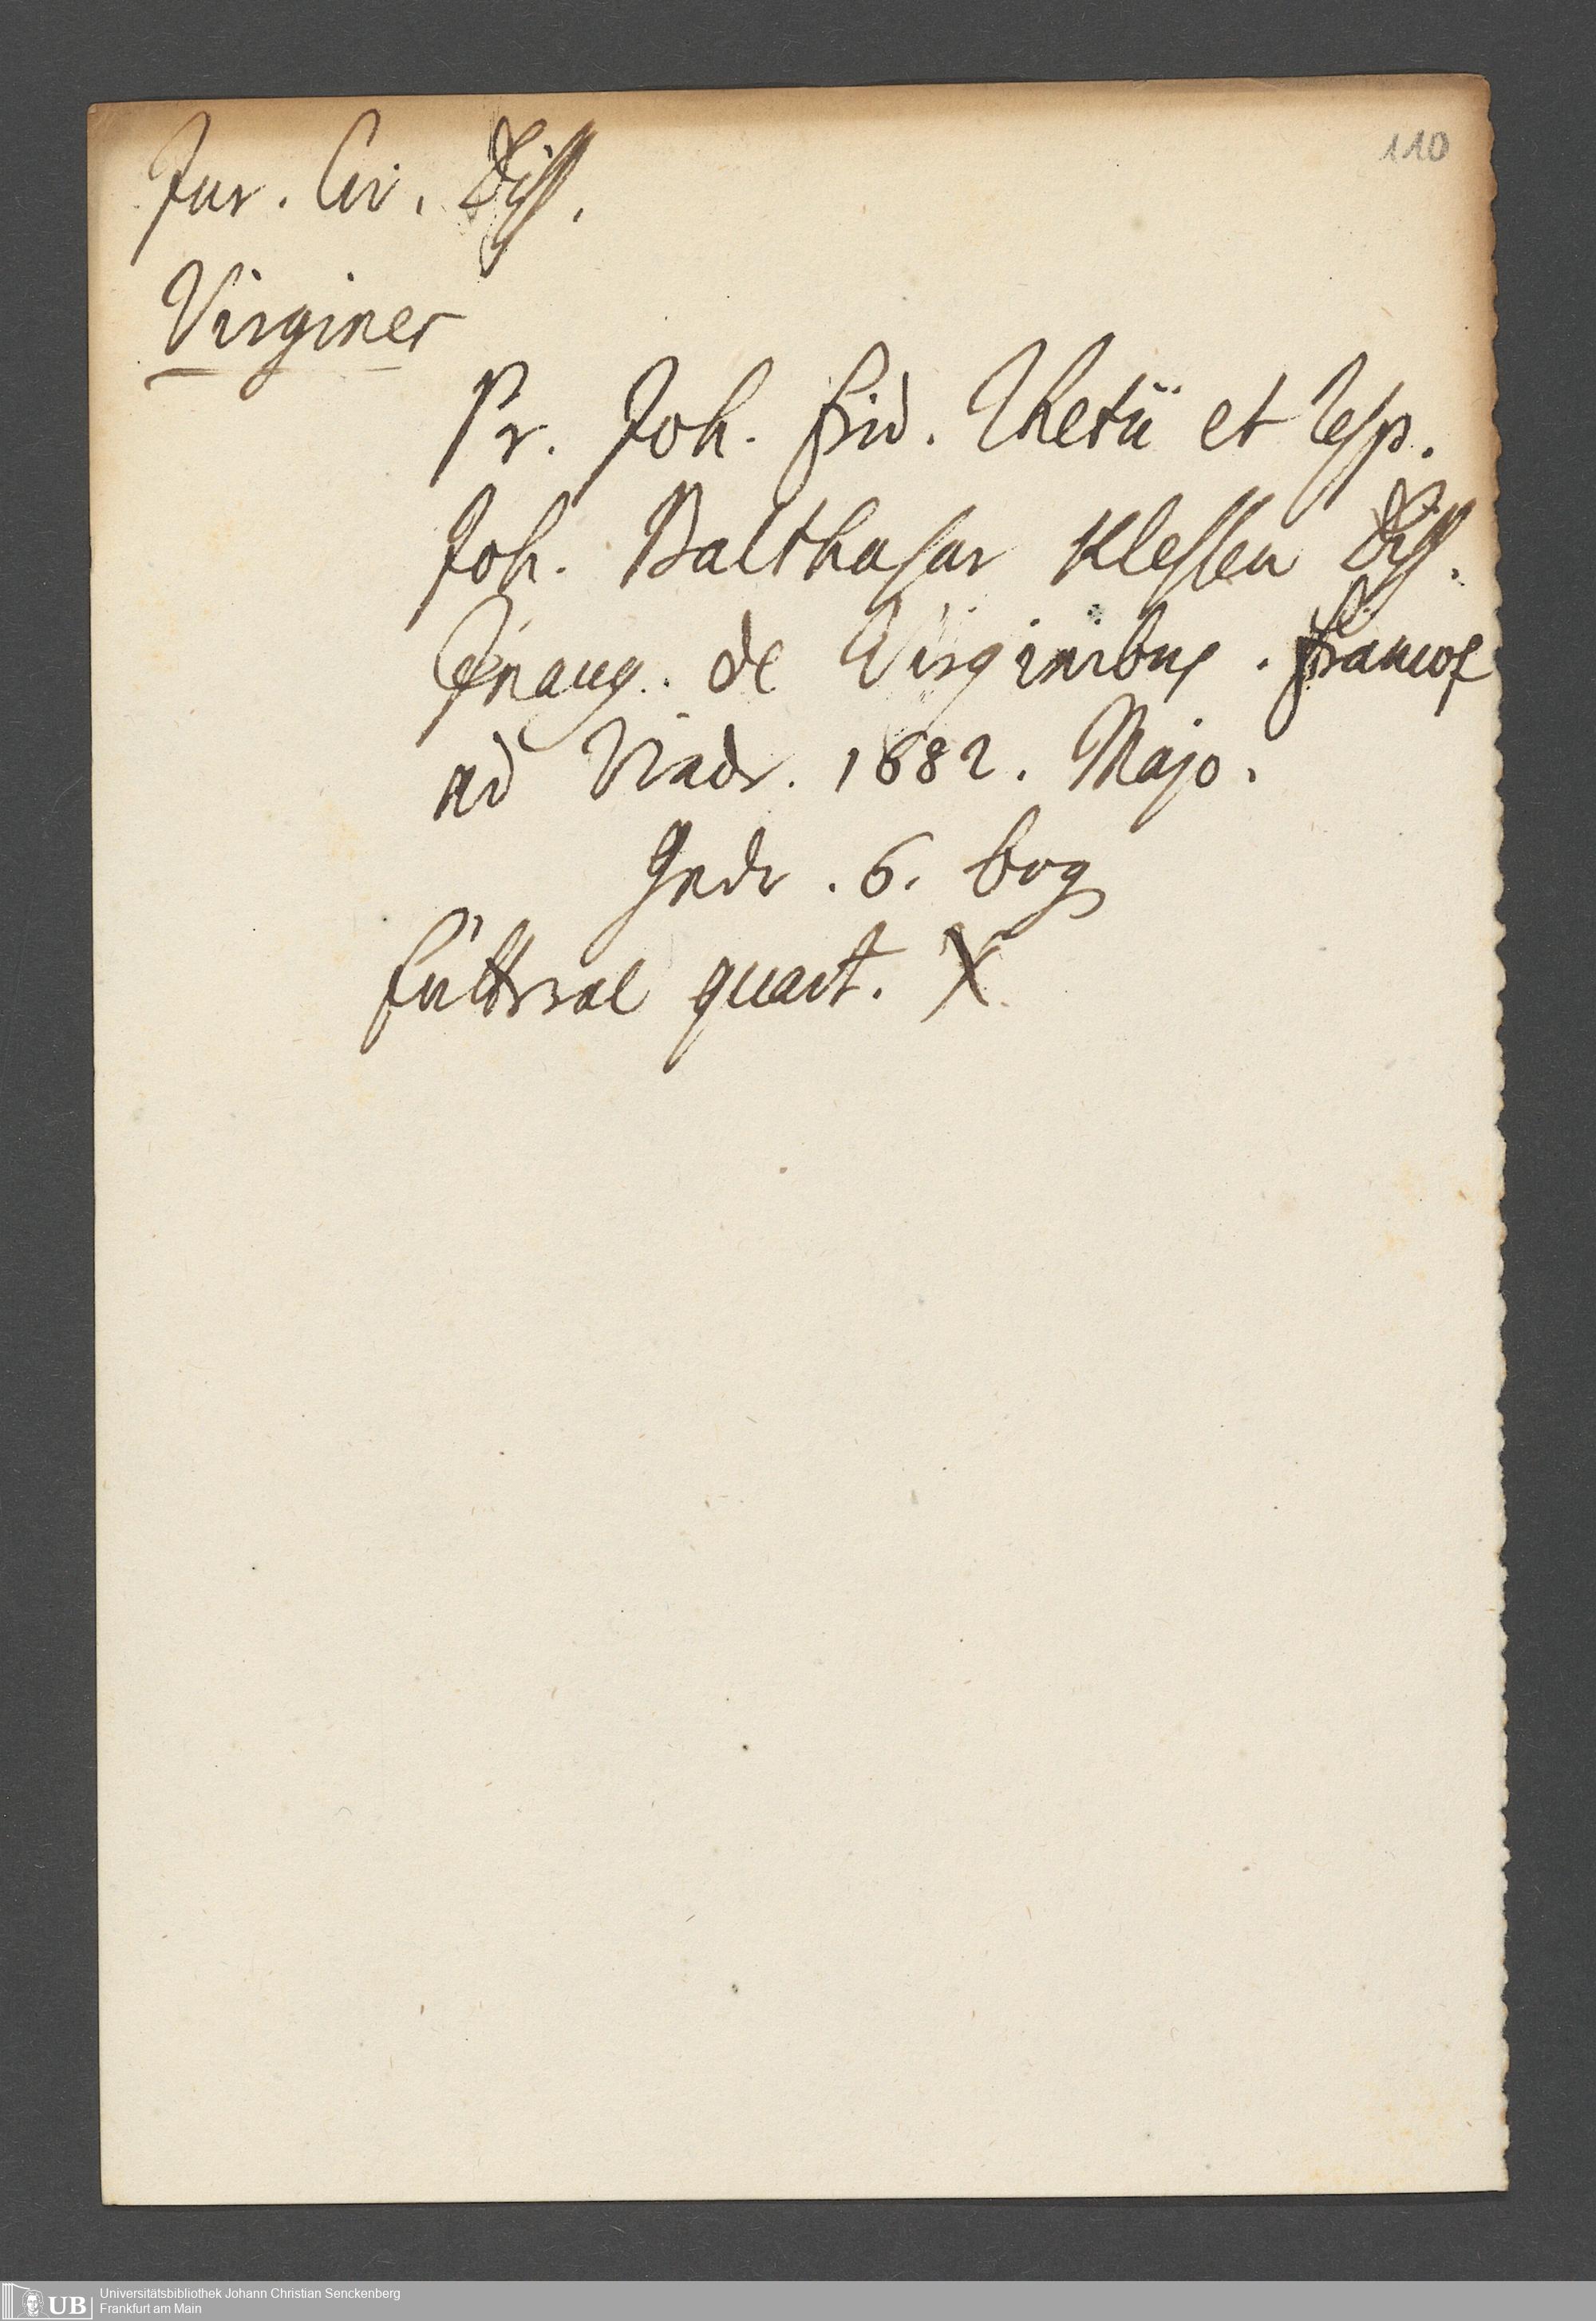 110
Jur. Civ. Diss.
Virgines
Pr. Joh. Frid. Rhetii et Resp.
Joh. Balthasar Klessen Diss.
Inaug. de Virginibus. Francof
ad Viadr. 1682. Majo.
6. bog
Futteral quart. X
Universitätsbibliothek Johann Christian Senckenberg
Frankfurt am Main
UB